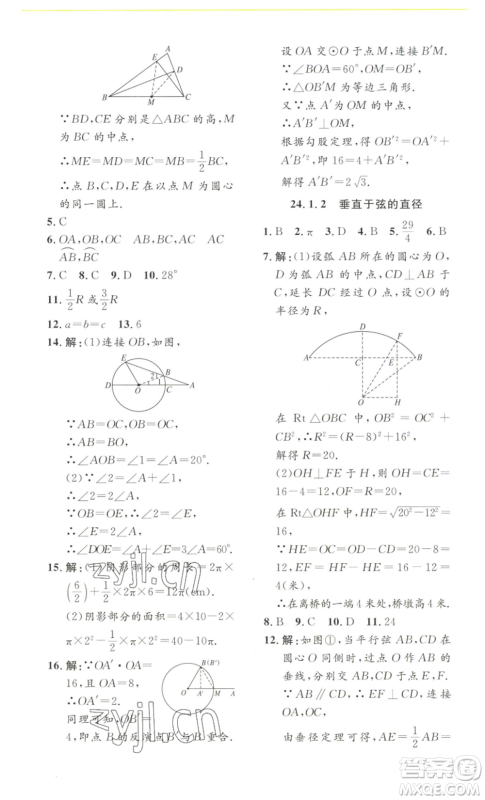 A
E
D
B
M
C
∵BD,CE分别是△ABC的高,M
为BC的中点,
∴ME=MD=MC=MB=1/2BC.
∴点B,C,D,E在以点M为圆心
的同一圆上.
5.C
6.OA,OB,OC AB,BC,AC
AB,BC
7.C 8.C 9.D 10.28°
11.1/2R或3/2R
12.a=b=c 13.6
14.解:(1)连接OB,如图,
E
B
2
1
D
O
C
A
∵AB=OC,OB=OC,
∴AB=BO.
∴∠A=∠1=20°.
(2)∵∠2=∠A+∠1,
∴∠2=2∠A.
∵OB=OE,
∴∠2=∠E.
∴∠E=2∠A.
∴∠DOE=∠A+∠E=3∠A=60°.
15.解:(1)阴影部分的周长=2π×
(6/2)+2π×4=
16.解:∵OA′·OA=
16,且OA=8,
∴OA′=2.
同理可知,OB′=
4,即点B的反演点B′与B重合.
B(B′)
O
A′
M
A
设OA交⊙O于点M,连接B′M.
∵∠BOA=60°,OM=OB′,
∴△OB′M为等边三角形.
又∵点A′为OM的中点,
∴A′B′⊥OM.
根据勾股定理,得OB′²=OA′²+
A′B′²,即16=4+A′B′²,
解得A′B′=2√3.
24.1.2 垂直于弦的直径
1.B 2.π 3.D 4.D 5.29/4 6.B
7.解:(1)设弧AB所在的圆心为O,
D为弧AB的中点,CD⊥AB于点
C,延长DC经过O点,设⊙O的
半径为R,
D
F
A
C
E
B
O
H
在Rt△OBC中,OB²=OC²+
CB²,∴R²=(R-8)²+16².
解得R=20.
(2)OH⊥FE于点H,则OH=CE=
16-4=12,OF=R=20,
在Rt△OHF中,HF=√20²-12²=
16,
∵HE=OC=OD-CD=20-8=
12,EF=HF-HE=16-12=
4(米),
∴在离桥的一端4米处,桥墩高4米.
8.B 9.D 10.D 11.24
12.解:如图①,当平行弦AB,CD在
圆心O同侧时,过点O作AB的
垂线,分别交AB,CD于点E,F.
∵AB∥CD,∴OF⊥CD.
由垂径定理可得,AE=1/2AB=
zyjl.cn
zyjl.cn
答案圈
MXQE.COM